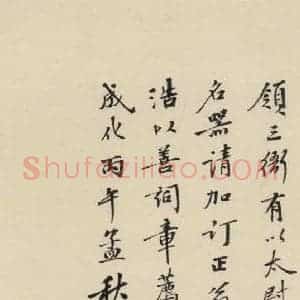 領三衙有以太尉
名器请加订正
浩以善词章荐
成化丙午孟秋
Shufaziliao.com